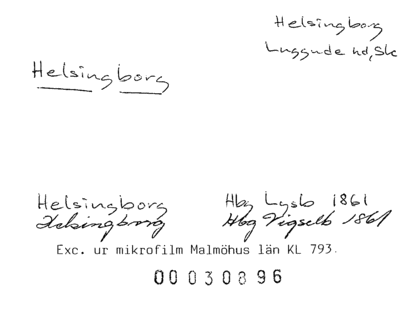 Helsingborg
Luggude hd, Sk
Helsingborg
Helsingborg Hbg Lysb 1861
Helsingborg Hbg Vigselb 1861
Exc. ur mikrofilm Malmöhus län KL 793.
00030896